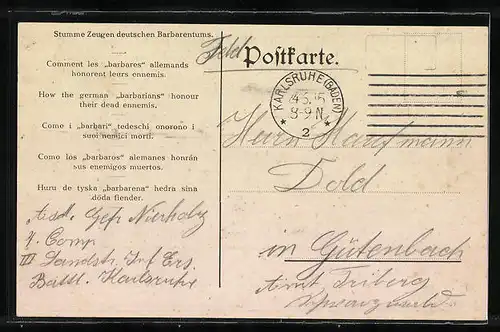 Stumme Zeugen deutschen Barbarentums.
Comment les „barbares" allemands
honorent leurs ennemis.
How the german „barbarians" honour
their dead ennemis.
Come i „barbari" tedeschi onorono i
suoi nemici morti.
Como lòs „barbaros" alemanes honrán
sus enemigos muertos.
Huru de tyska „barbarena" hedra sina
döda fiender.
Feld Postkarte.
KARLSRUHE (BADEN)
8-9 N.
* 2 *
Herrn Kaufmann
Dold
in Gütenbach
Amt Triberg
Schwarzwald.
Abs. Gefr
4. Comp
III Landst. Inf Ers.
Battl. Karlsruhe